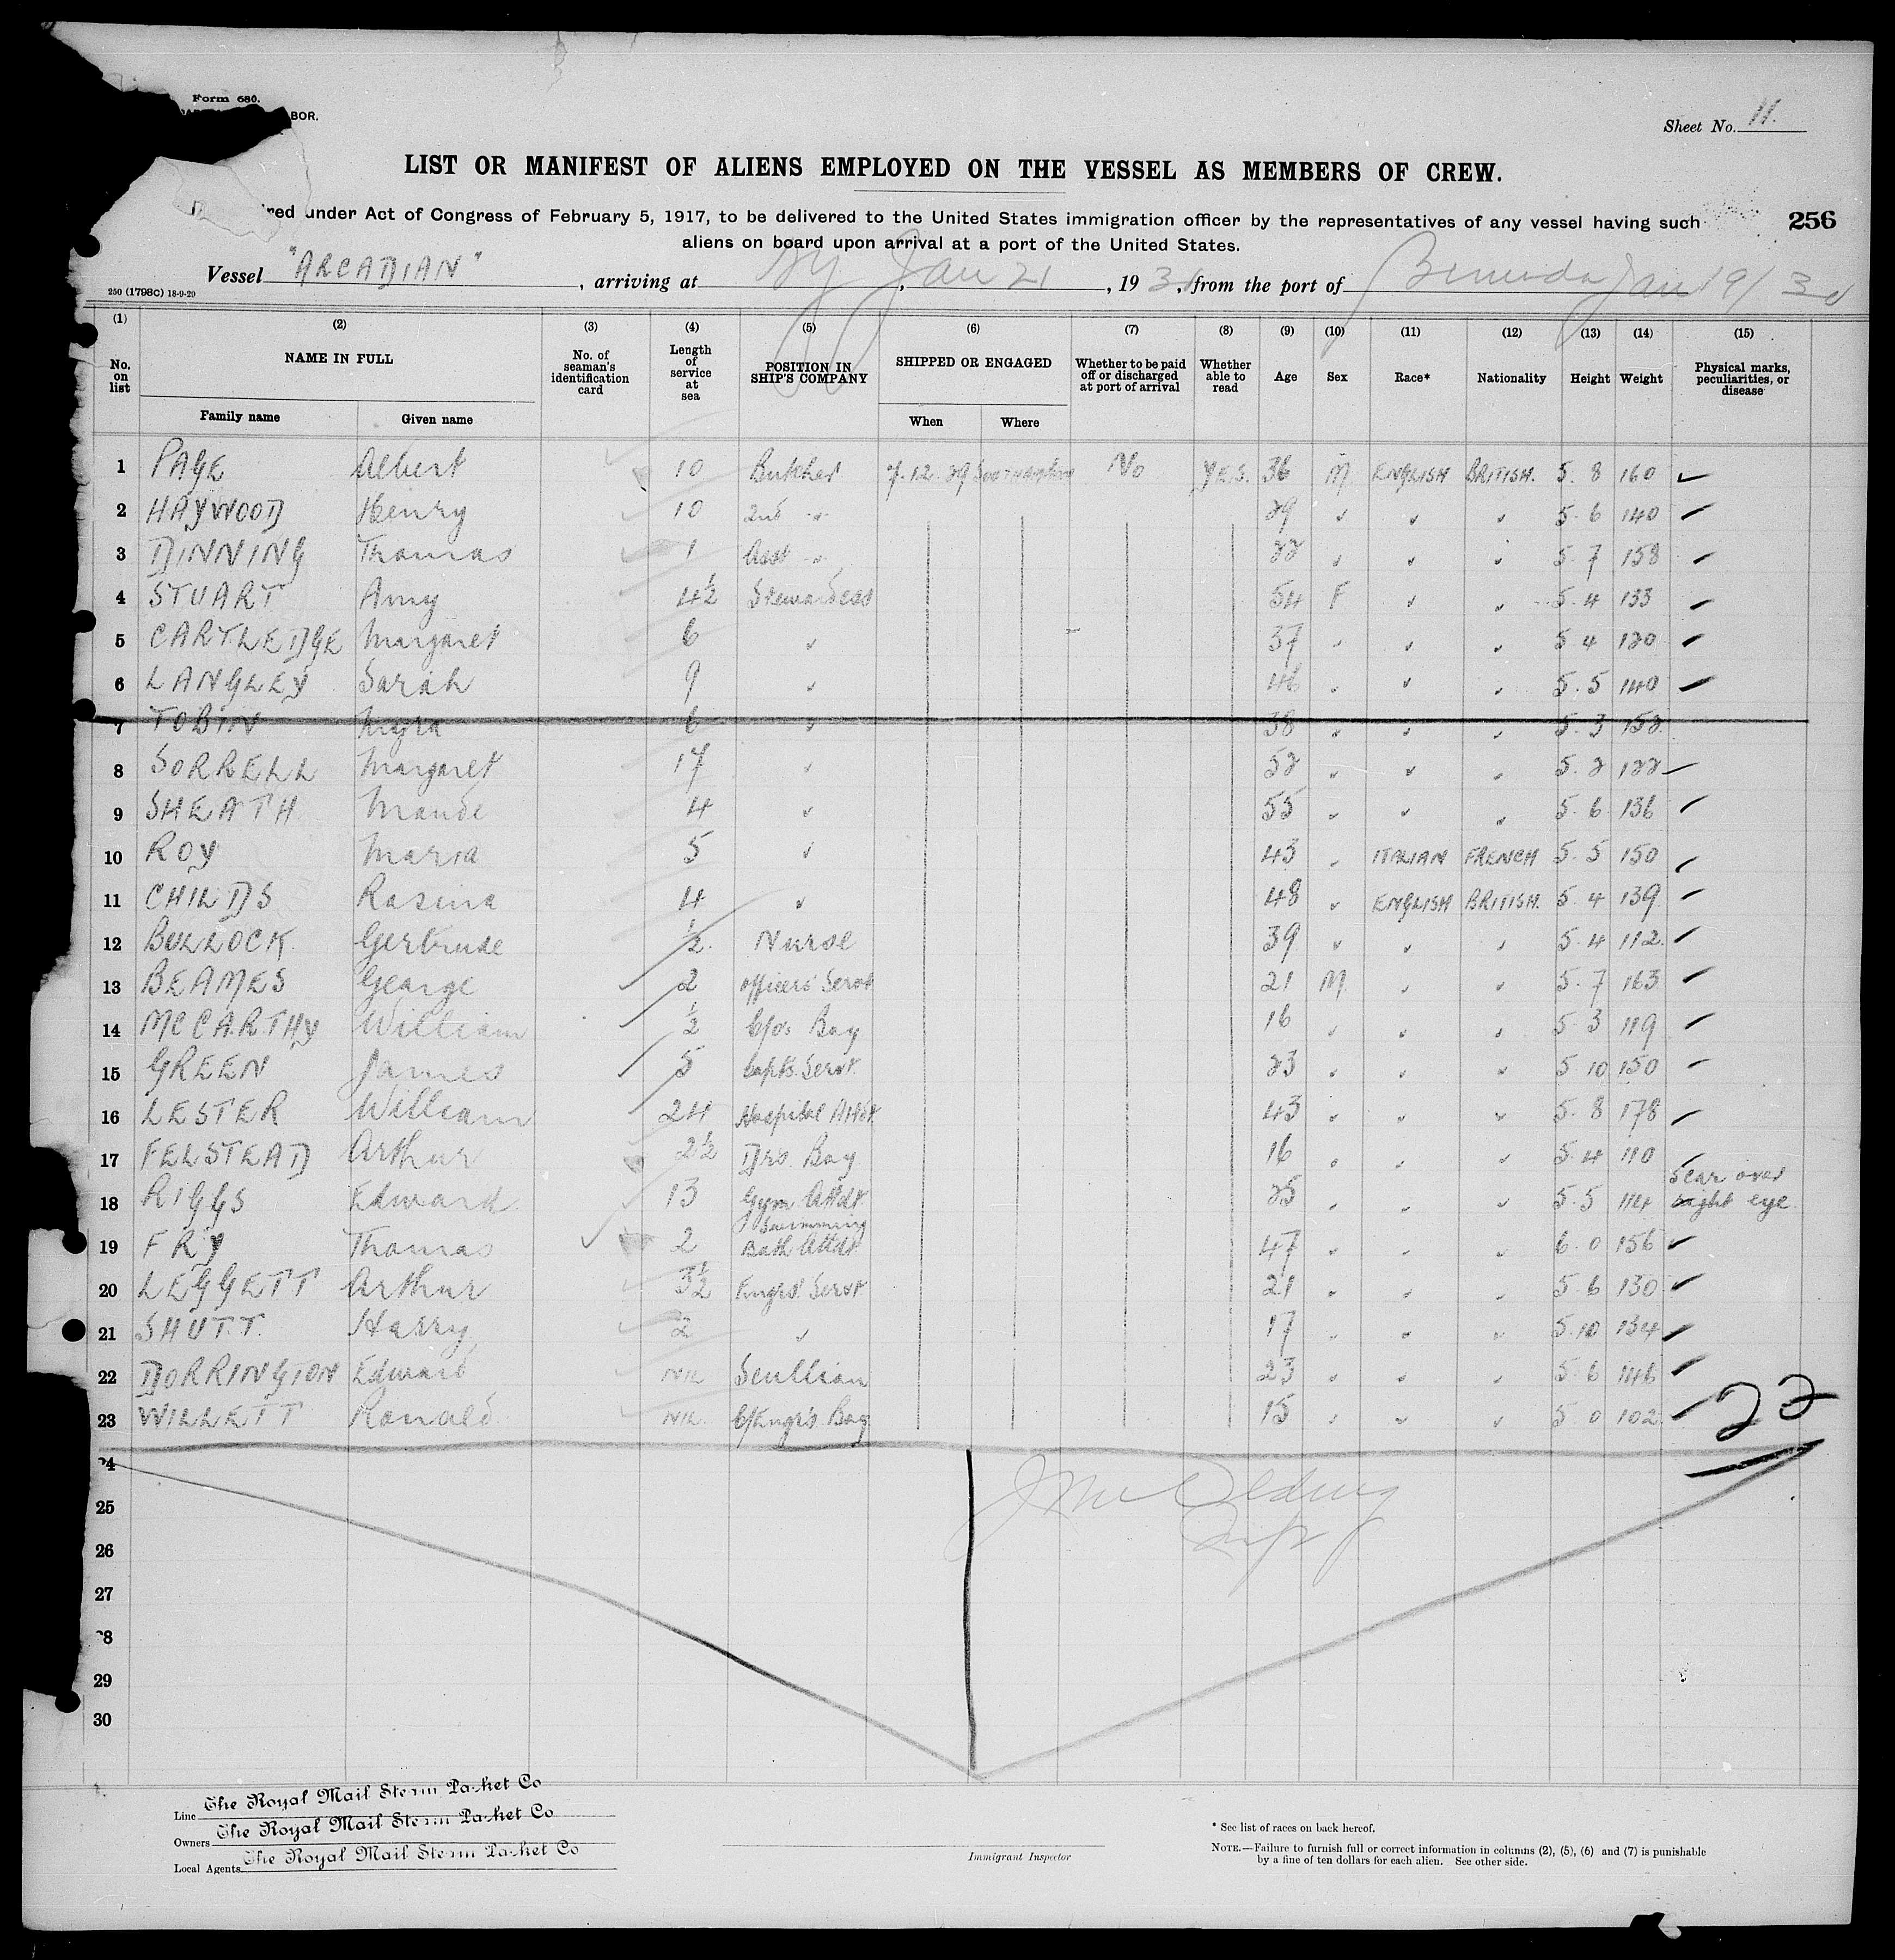 Form 680.
BOR.
Sheet No. 11.
LIST OR MANIFEST OF ALIENS EMPLOYED ON THE VESSEL AS MEMBERS OF CREW.
red under Act of Congress of February 5, 1917, to be delivered to the United States immigration officer by the representatives of any vessel having such
256
aliens on board upon arrival at a port of the United States.
Vessel "ARCADIAN" , arriving at NY Jan 21 , 193 , from the port of Bermuda Jan 19/30
250 (1798c) 18-9-29
(1) (2) (3) (4) (5) (6) (7) (8) (9) (10) (11) (12) (13) (14) (15)
No. on list NAME IN FULL No. of seaman's identification card Length of service at sea POSITION IN SHIP'S COMPANY SHIPPED OR ENGAGED Whether to be paid off or discharged at port of arrival Whether able to read Age Sex Race* Nationality Height Weight Physical marks, peculiarities, or disease
Family name Given name When Where
1 PAGE Albert 10 Butcher 7.12.29 Southampton No YES. 36 M ENGLISH BRITISH. 5. 8 160 ✓
2 HAYWOOD Henry 10 2nd -"- 29 " " " 5. 6 140
3 DINNING Thomas 1 Asst -"- 22 " " " 5. 7 158
4 STUART Amy 4½ Stewardess 54 F " " 5. 4 133
5 CARTLEDGE Margaret 6 " 37 " " " 5 4 120
6 LANGLEY Sarah 9 " 46 " " " 5. 5 140
7 TOBIN Myra 6 " 38 " " " 5. 3 152
8 SORRELL Margaret 17 " 52 " " " 5. 2 122
9 SHEATH Maude 4 " 55 " " " 5. 6 136
10 ROY Maria 5 " 43 " ITALIAN FRENCH 5. 5 150
11 CHILDS Rosina 4 " 48 " ENGLISH BRITISH. 5. 4 139
12 BULLOCK Gertrude ½ Nurse 39 " " " 5. 4 112.
13 BEAMES George 2 Officers' Servt 21 M. " " 5. 7 163
14 MCCARTHY William ½ C/o's Boy 16 " " " 5. 3 119
15 GREEN James 5 Capt's. Servt. 23 " " " 5 10 150
16 LESTER William 24 Hospital Attdt 43 " " " 5. 8 178
17 FELSTEAD Arthur 2½ Drs. Boy 16 " " " 5. 4 110
18 RIGGS Edward. 13 Gym Attdt 25 " " " 5. 5 114 Scar over right eye
19 FRY Thomas 2 Swimming Bath Attdt 47 " " " 6. 0 156
20 LEGGETT Arthur 3½ Engrs' Servt 21 " " " 5. 6 130
21 SHUTT. Harry 2 " 17 " " " 5. 10 134
22 DORRINGTON Edward NIL Scullion 23 " " " 5. 6 146
23 WILLETT Ronald NIL. C/Engr's Boy 15 " " " 5. 0 102
22
24
25
26
27
28
29
30
Insp
Line The Royal Mail Steam Packet Co
Owners The Royal Mail Steam Packet Co
Local Agents The Royal Mail Steam Packet Co
Immigrant Inspector
* See list of races on back hereof.
NOTE.—Failure to furnish full or correct information in columns (2), (5), (6) and (7) is punishable
by a fine of ten dollars for each alien. See other side.